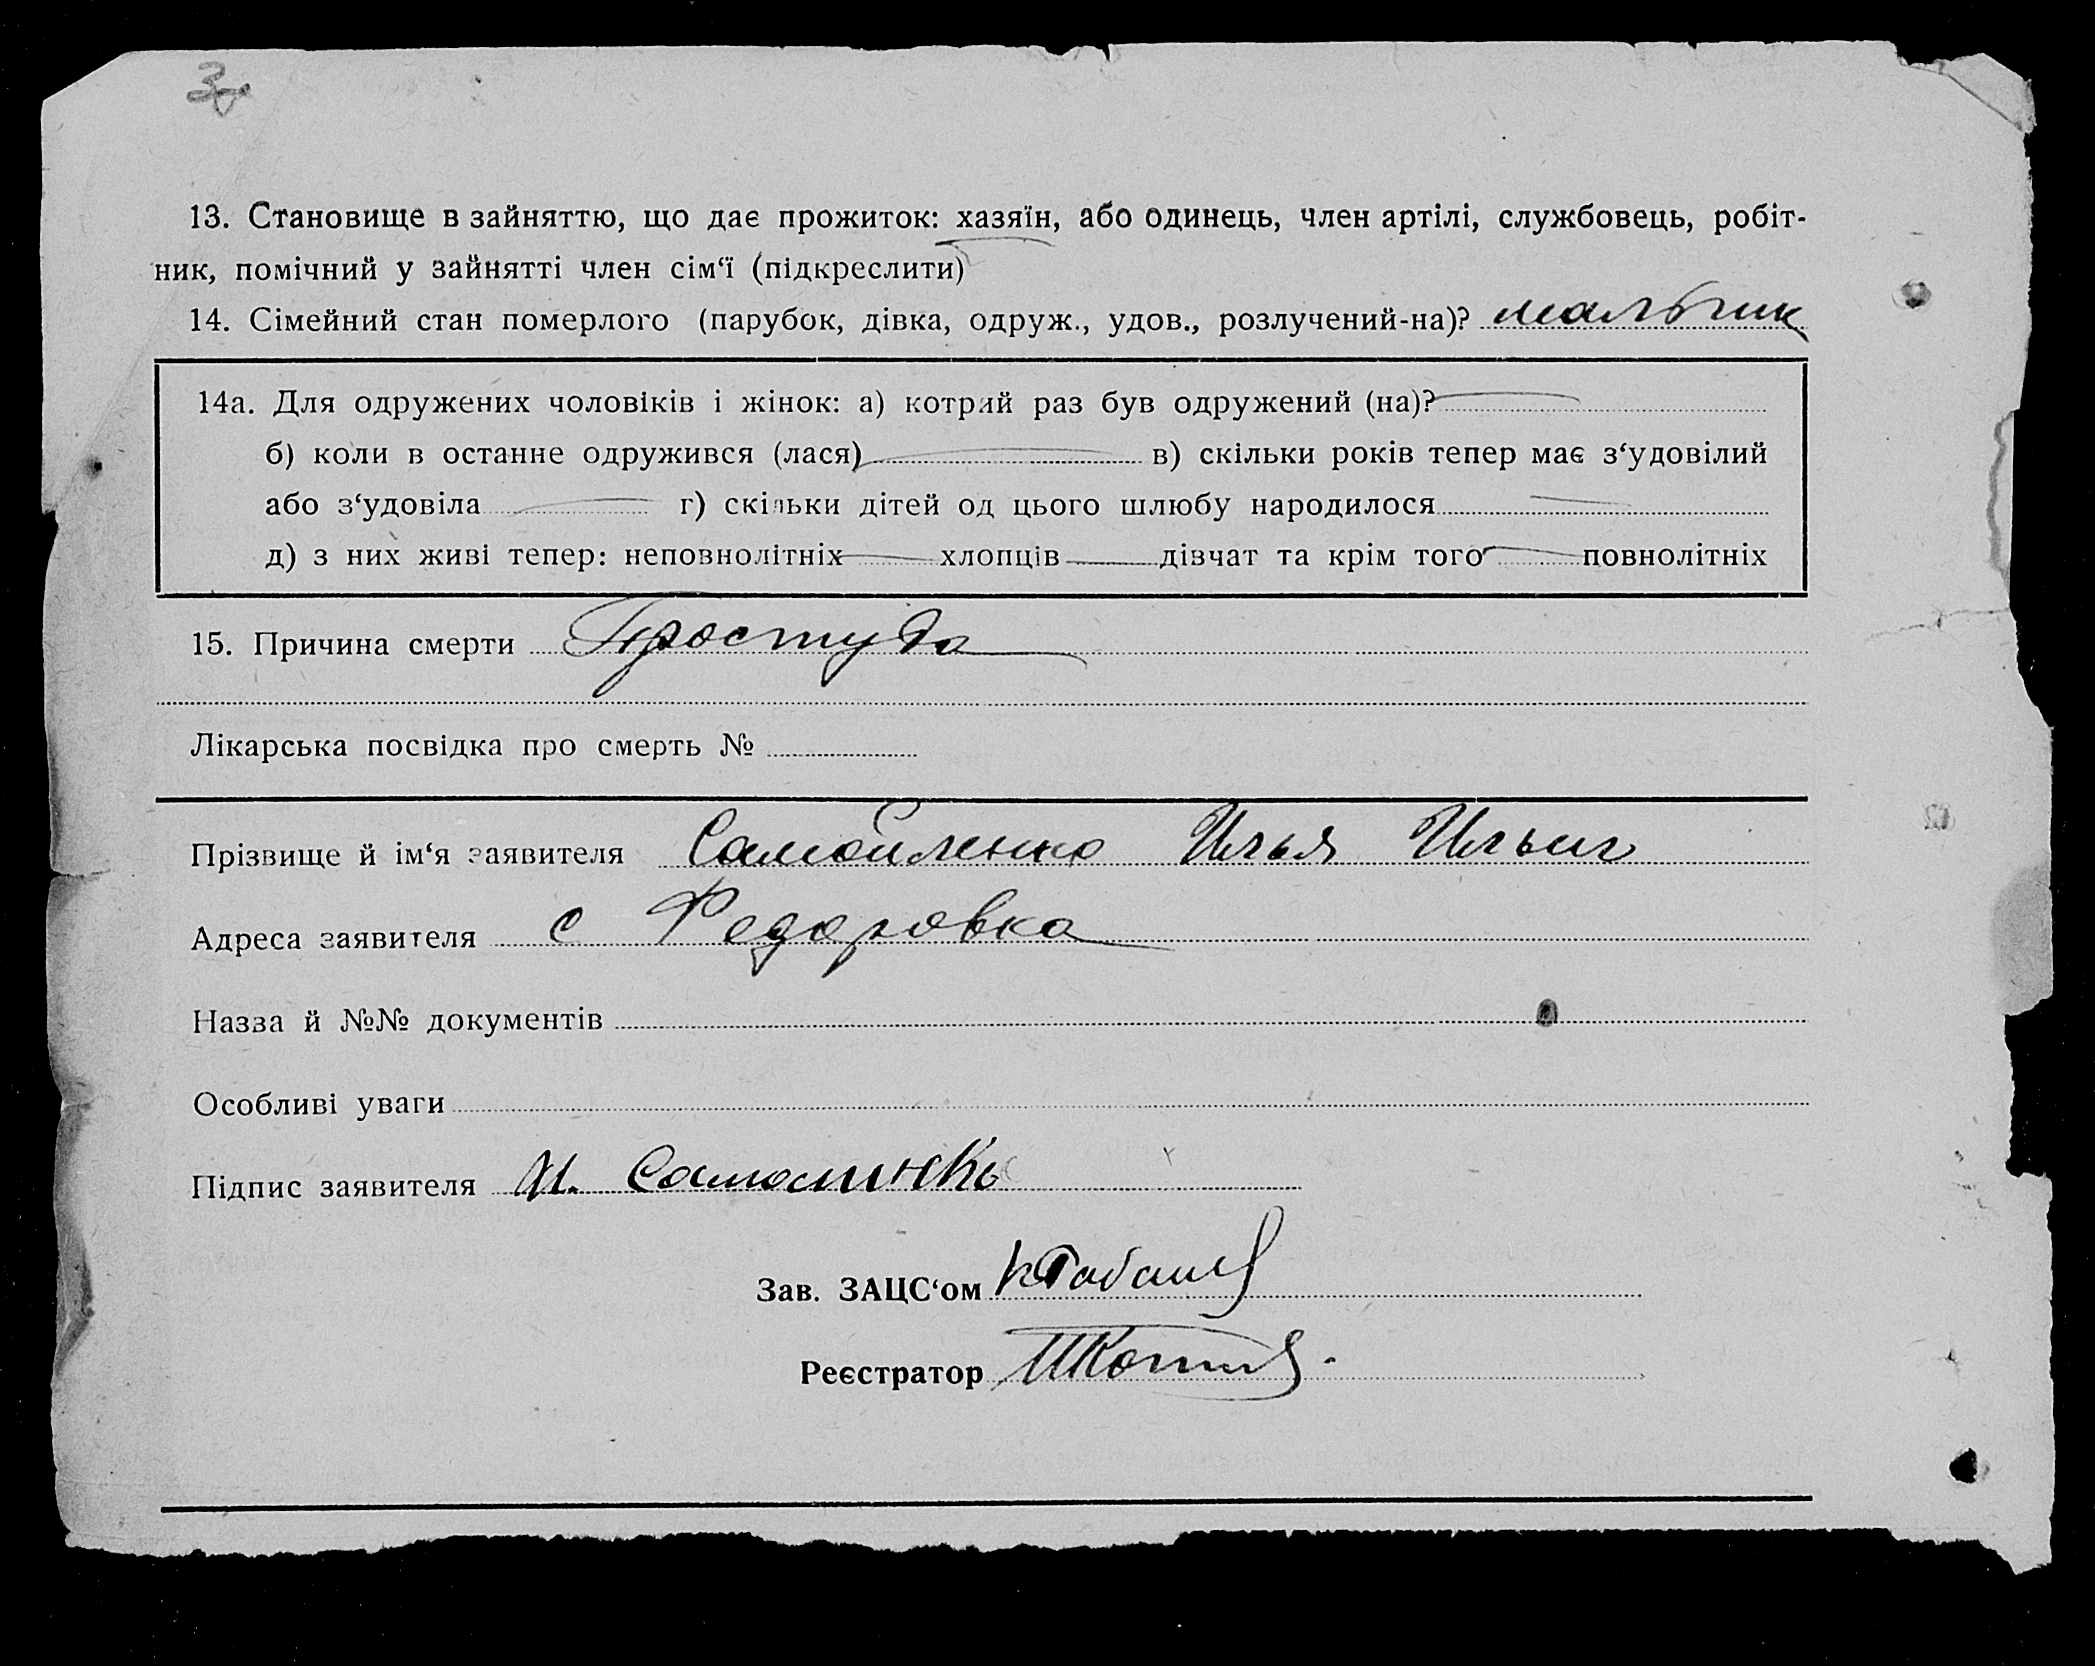 13. Становище в зайняттю, що дає прожиток: хазяїн, або одинець, член артілі, службовець, робіт-
ник, помічний у зайнятті член сім‘ї (підкреслити)
14. Сімейний стан померлого (парубок, дівка, одруж., удов., розлучений-на)? мальчик
14а. Для одружених чоловіків і жінок: а) котрий раз був одружений (на)?
б) коли в останне одружився (лася) в) скільки років тепер має з‘удовілий
або з‘удовіла г) скільки дітей од цього шлюбу народилося
д) з них живі тепер: неповнолітніх хлопців дівчат та крім того повнолітніх
15. Причина смерти Простуда
Лікарська посвідка про смерть №
Прізвище й ім‘я заявителя Самойленко Илья Ильич
Адреса заявителя с Федоровка
Назва й №№ документів
Особливі уваги
Підпис заявителя И.
Зав. ЗАЦС‘ом
Реєстратор